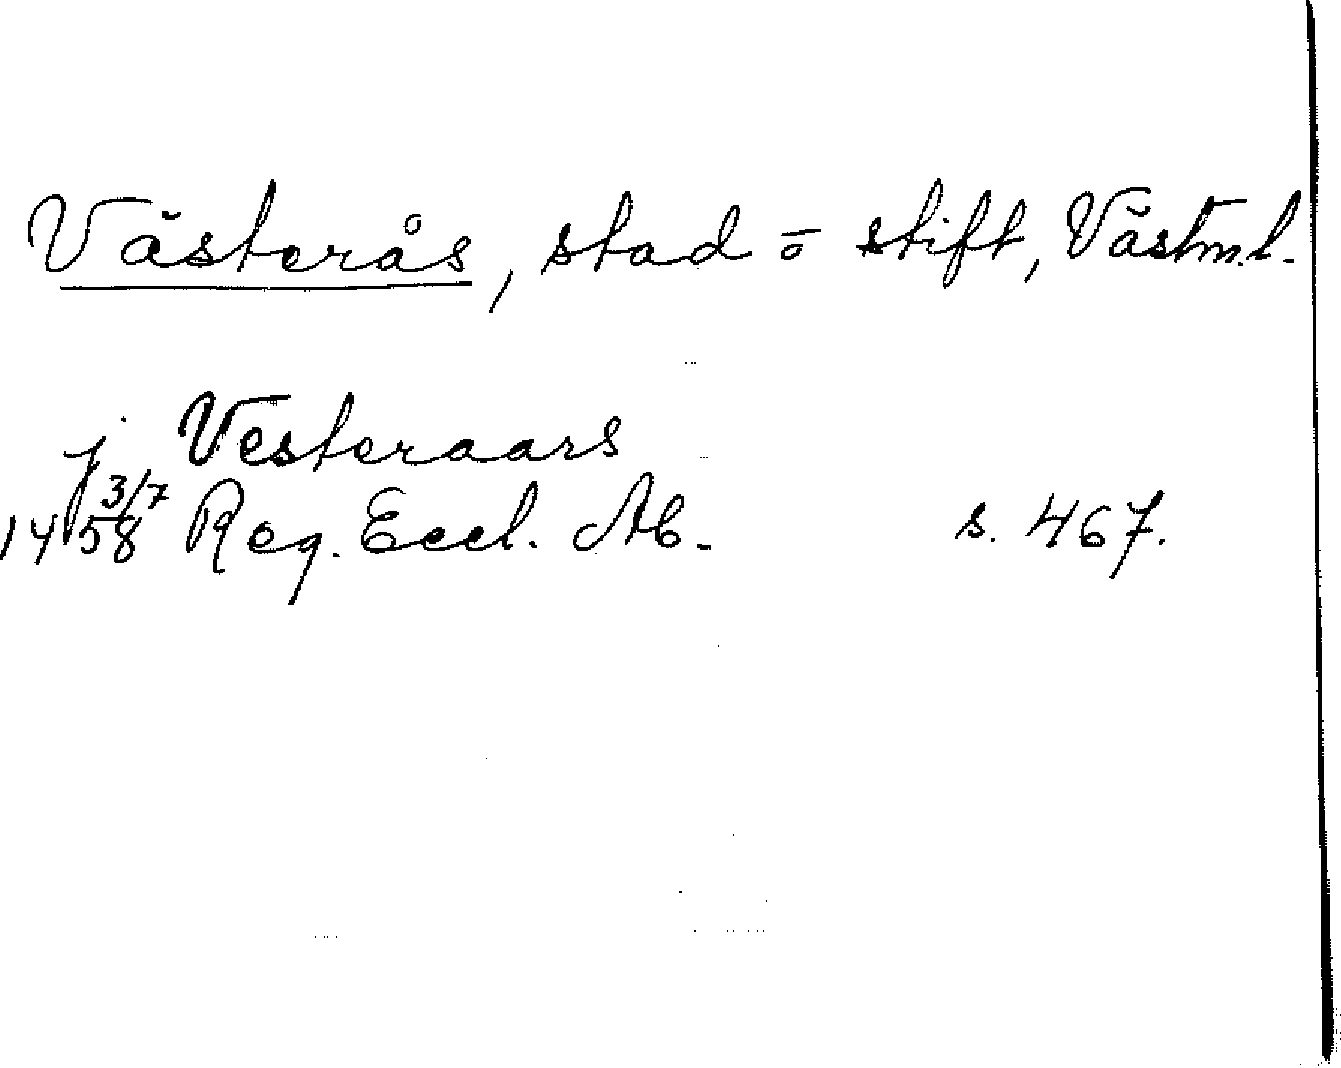 Västerås, stad o stift, Västm.l.
j Vesteraars
1458 3/7 Reg. Eccl. Ab. s. 467.